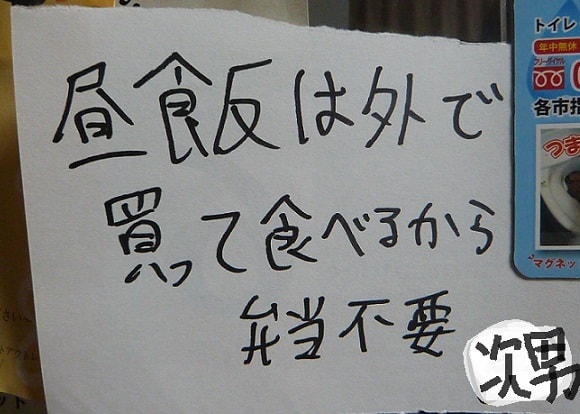 昼飯は外で
買って食べるから
弁当不要
次男
トイレ
年中無休
フリーダイヤル
各市指
つま
マグネッ